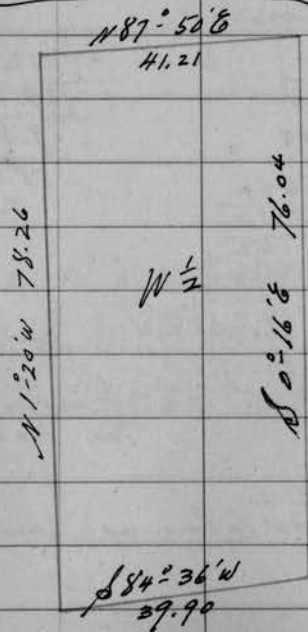 N 87°- 50' E
41.21
N 1°- 20' W 78.26
W 1/2
S 0°- 16' E 76.04
S 84°- 36' W
39.90